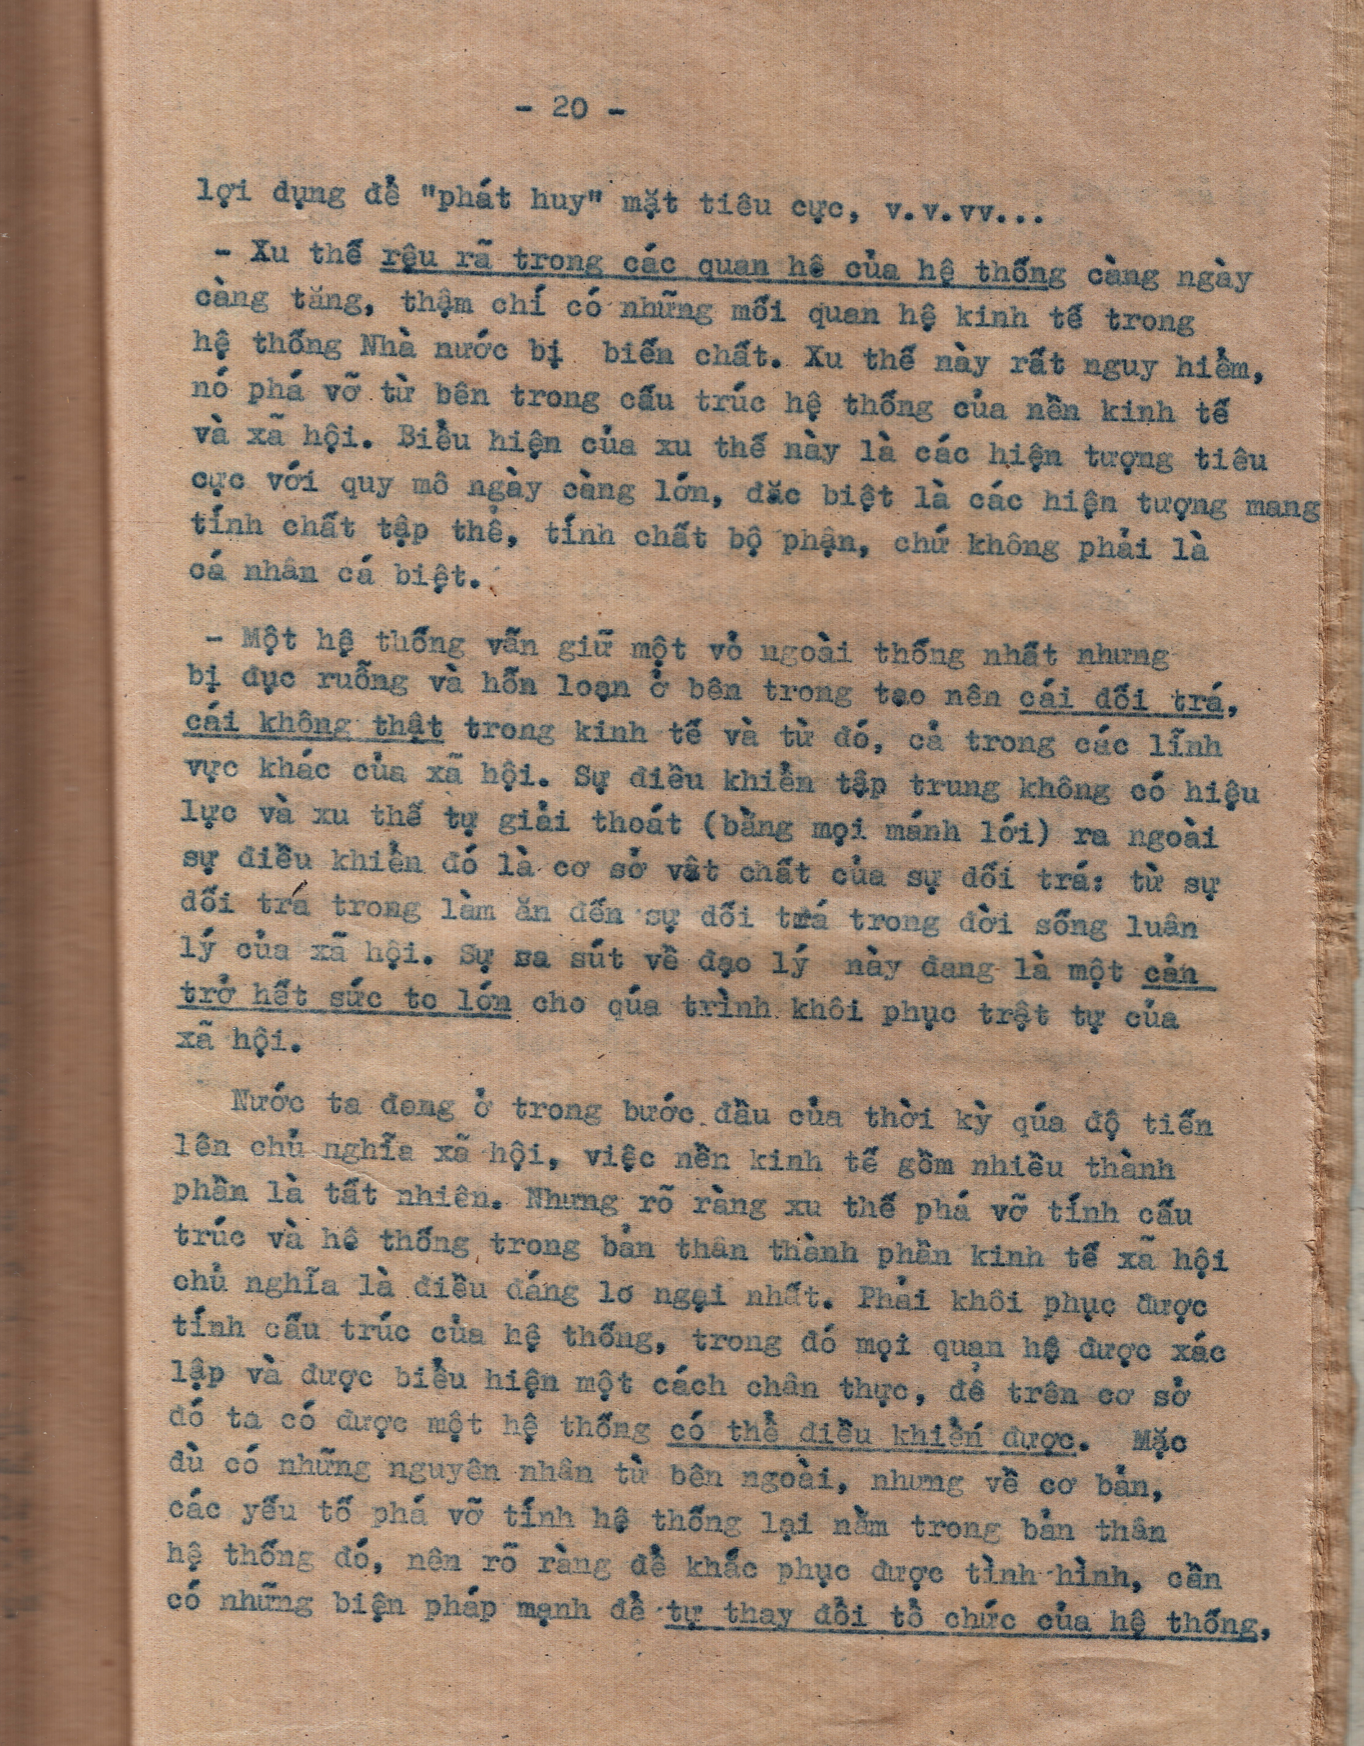 - 20 -
lợi dụng để "phát huy" mặt tiêu cực, v.v.vv...
- Xu thế rệu rã trong các quan hệ của hệ thống càng ngày
càng tăng, thậm chí có những mối quan hệ kinh tế trong
hệ thống Nhà nước bị biến chất. Xu thế này rất nguy hiểm,
nó phá vỡ từ bên trong cấu trúc hệ thống của nền kinh tế
và xã hội. Biểu hiện của xu thế này là các hiện tượng tiêu
cực với quy mô ngày càng lớn, đặc biệt là các hiện tượng mang
tính chất tập thể, tính chất bộ phận, chứ không phải là
cá nhân cá biệt.
- Một hệ thống vẫn giữ một vỏ ngoài thống nhất nhưng
bị đục ruỗng và hỗn loạn ở bên trong tạo nên cái dối trá,
cái không thật trong kinh tế và từ đó, cả trong các lĩnh
vực khác của xã hội. Sự điều khiển tập trung không có hiệu
lực và xu thế tự giải thoát (bằng mọi mánh lới) ra ngoài
sự điều khiển đó là cơ sở vật chất của sự dối trá: từ sự
dối trá trong làm ăn đến sự dối trá trong đời sống luân
lý của xã hội. Sự sa sút về đạo lý này đang là một cản
trở hết sức to lớn cho qúa trình khôi phục trật tự của
xã hội.
Nước ta đang ở trong bước đầu của thời kỳ qúa độ tiến
lên chủ nghĩa xã hội, việc nền kinh tế gồm nhiều thành
phần là tất nhiên. Nhưng rõ ràng xu thế phá vỡ tính cấu
trúc và hệ thống trong bản thân thành phần kinh tế xã hội
chủ nghĩa là điều đáng lo ngại nhất. Phải khôi phục được
tính cấu trúc của hệ thống, trong đó mọi quan hệ được xác
lập và được biểu hiện một cách chân thực, để trên cơ sở
đó ta có được một hệ thống có thể điều khiển được. Mặc
dù có những nguyên nhân từ bên ngoài, nhưng về cơ bản,
các yếu tố phá vỡ tính hệ thống lại nằm trong bản thân
hệ thống đó, nên rõ ràng để khắc phục được tình hình, cần
có những biện pháp mạnh để tự thay đổi tổ chức của hệ thống,